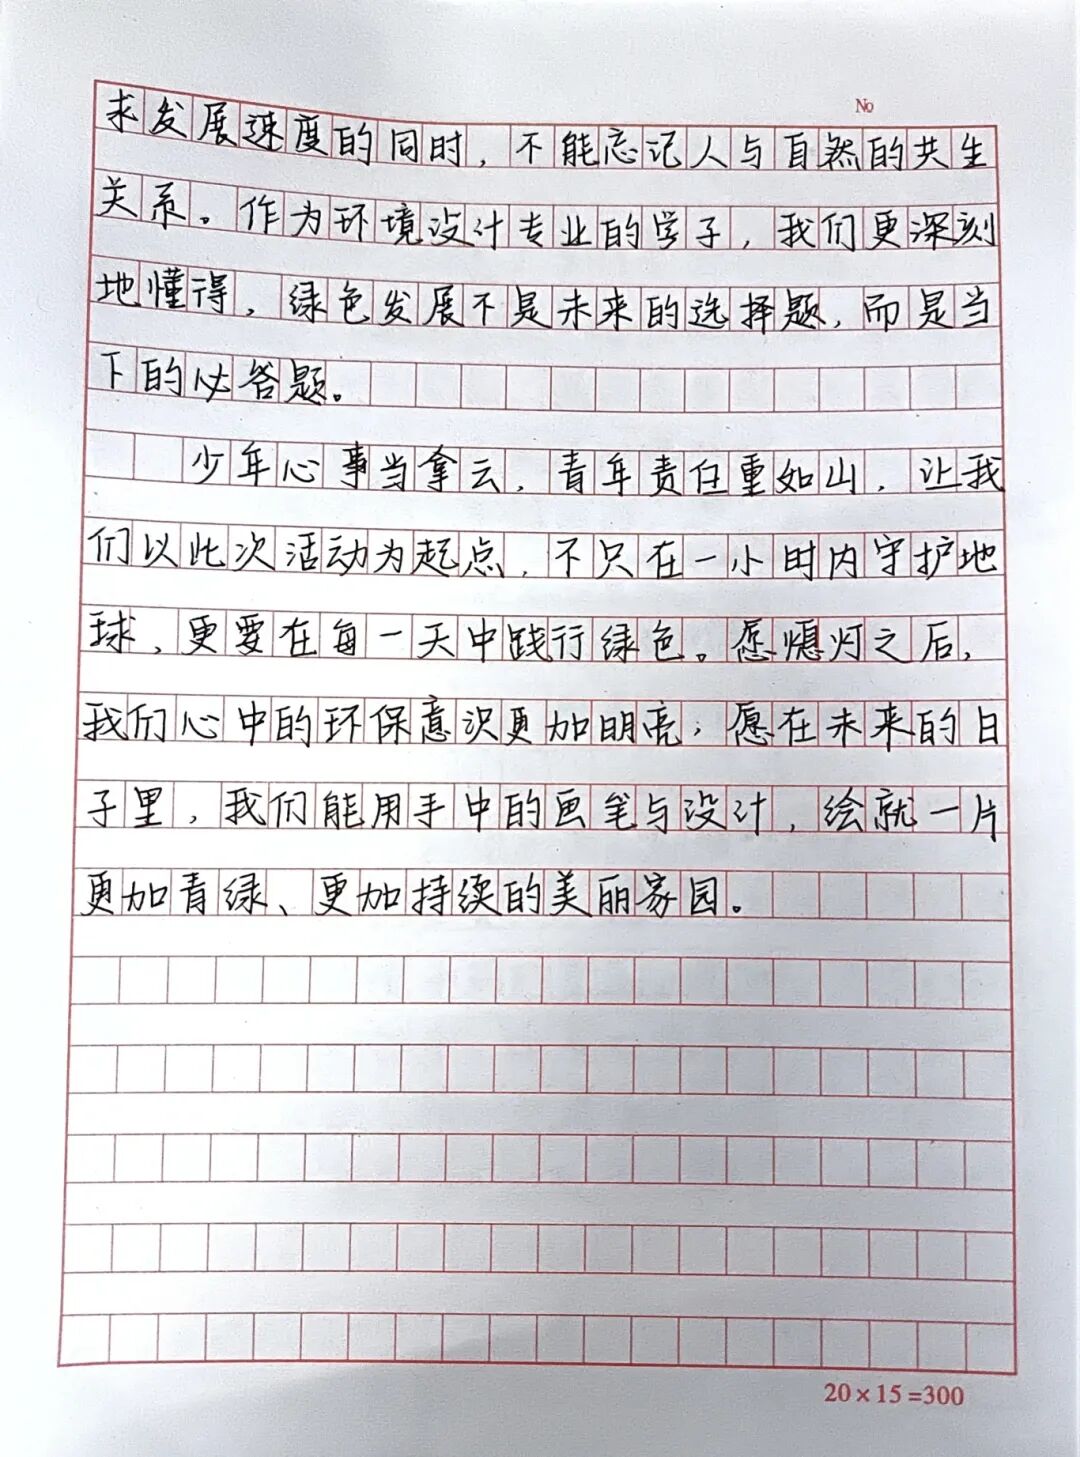 No
求发展速度的同时，不能忘记人与自然的共生
关系。作为环境设计专业的学子，我们更深刻
地懂得，绿色发展不是未来的选择题，而是当
下的必答题。
少年心事当拿云，青年责任重如山，让我
们以此次活动为起点，不只在一小时内守护地
球，更要在每一天中践行绿色。愿熄灯之后，
我们心中的环保意识更加明亮；愿在未来的日
子里，我们能用手中的画笔与设计，绘就一片
更加青绿、更加持续的美丽家园。
20×15=300